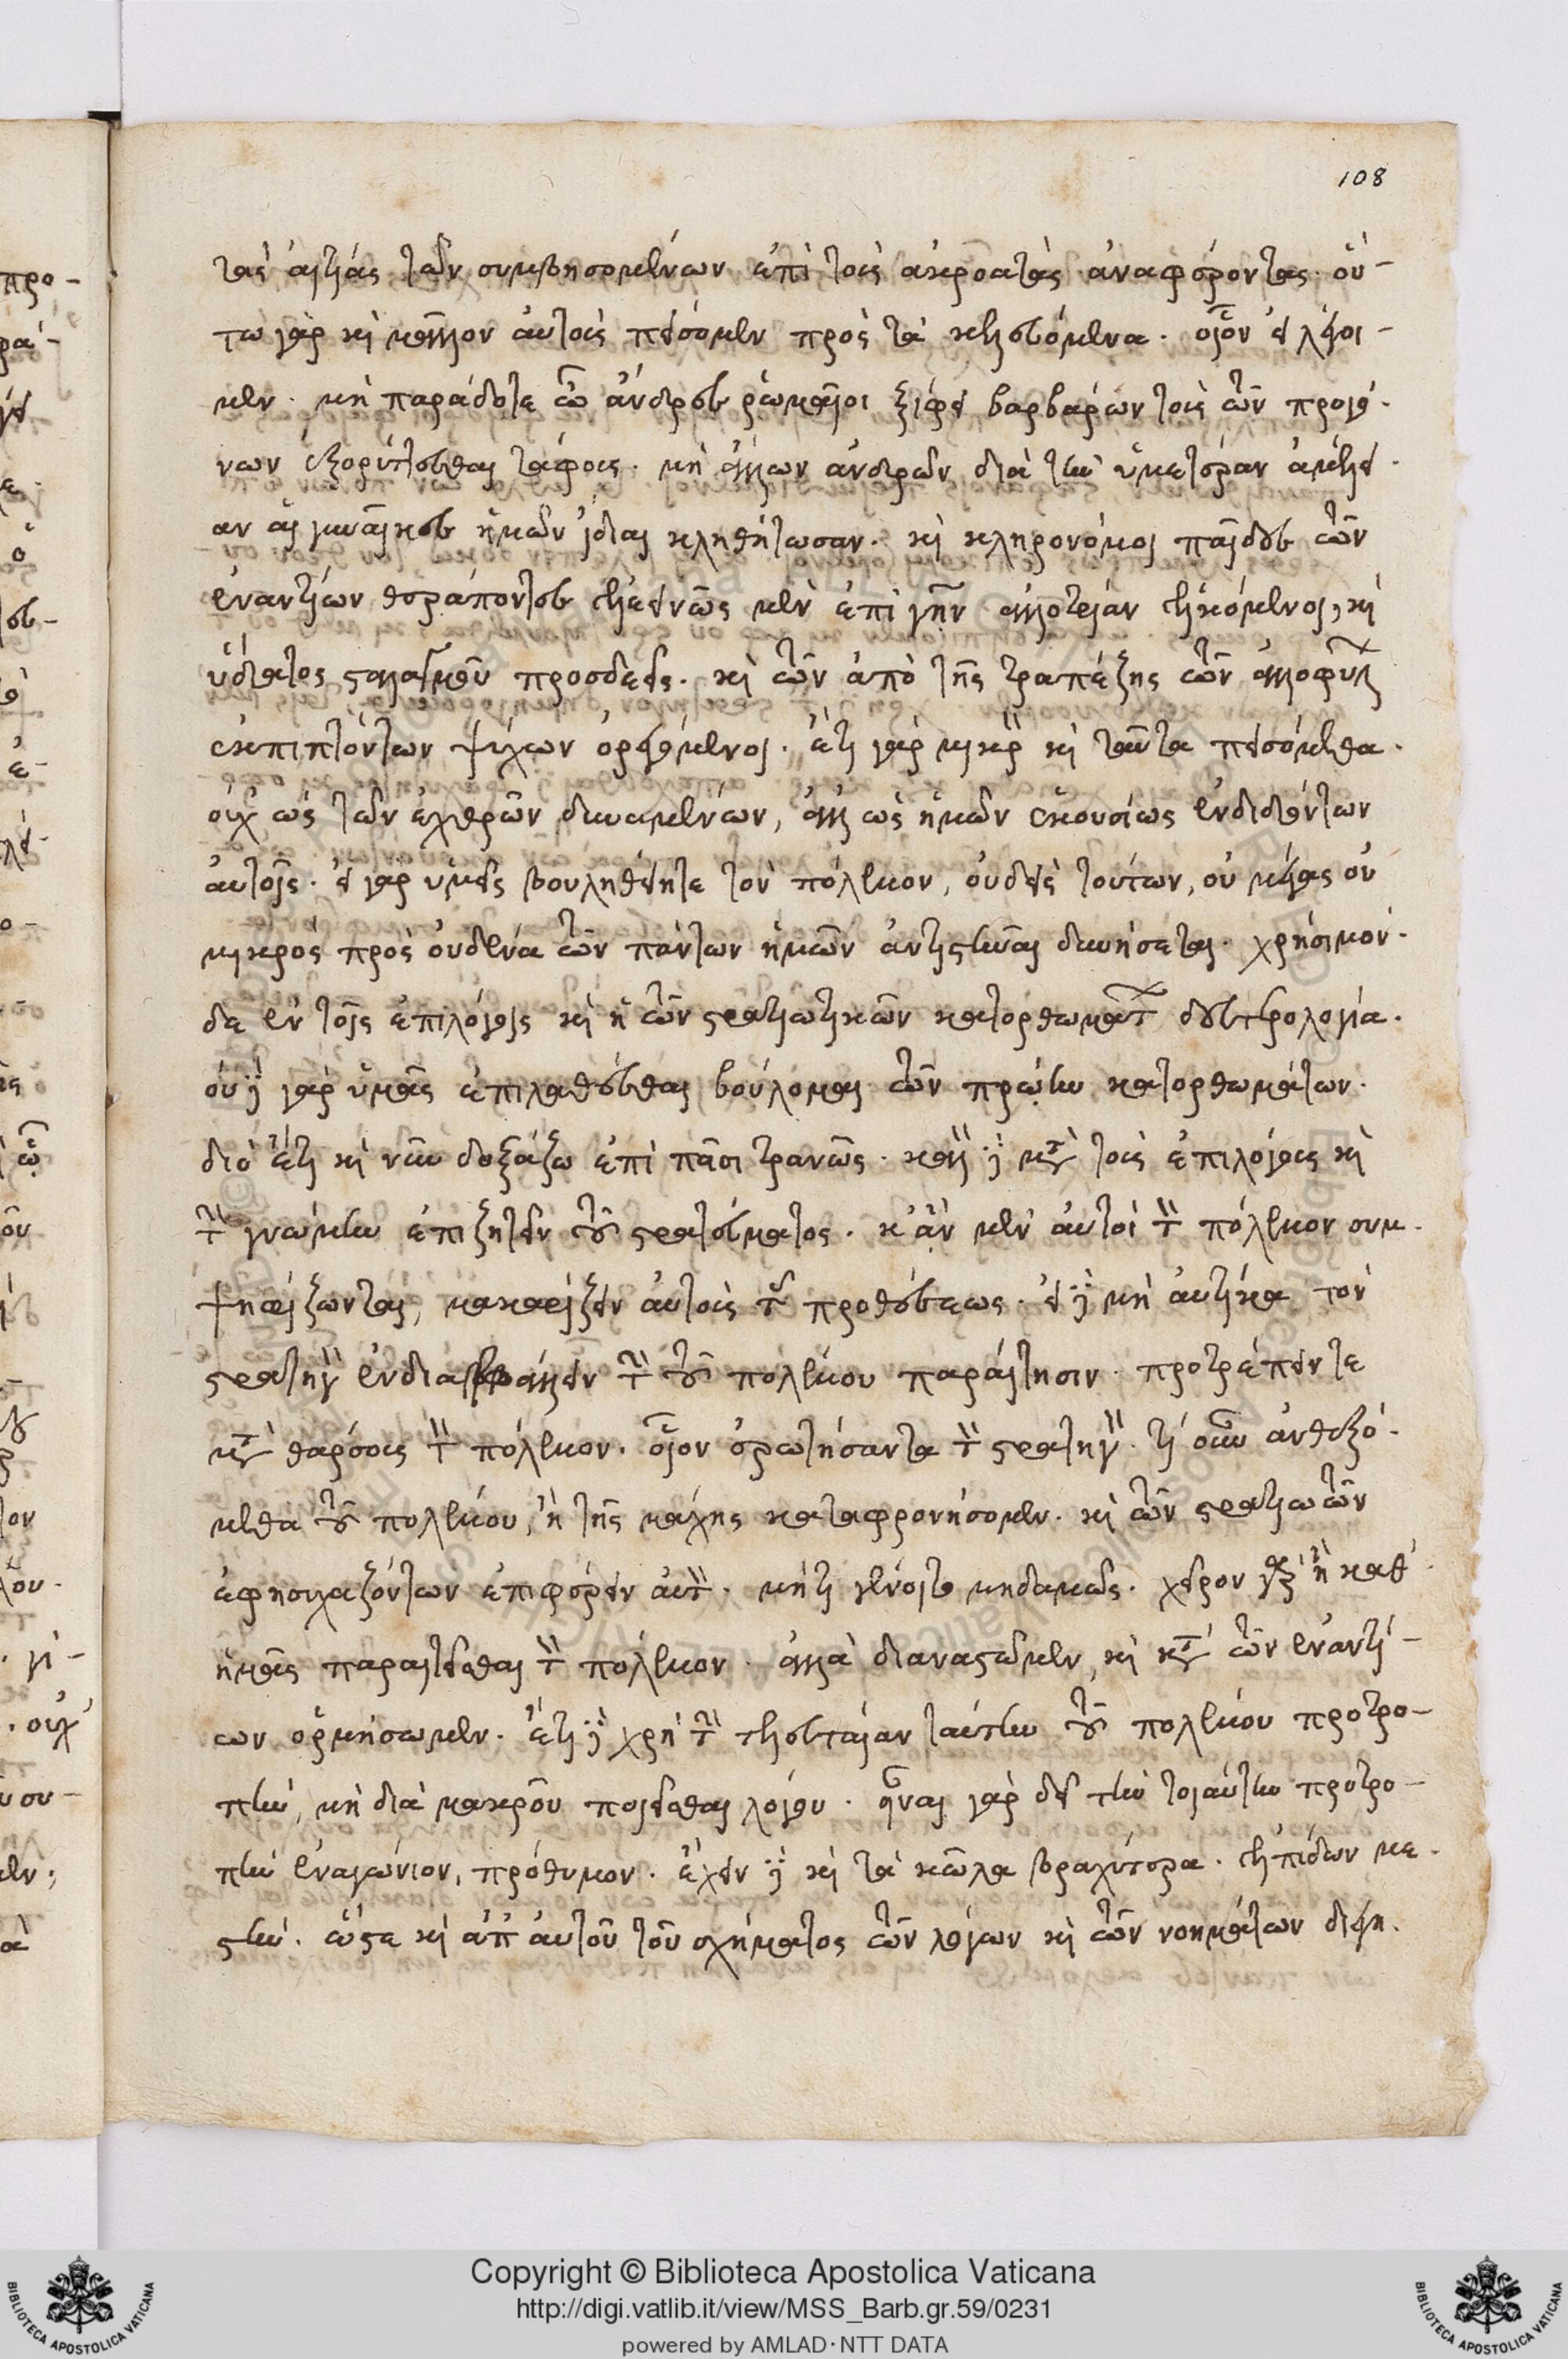 108
τὰς αἰτίας τῶν συμβησομένων ἐπὶ τοὺς ἀκροατὰς ἀναφέροντας. οὕ-
τω γὰρ καὶ μᾶλλον αὐτοὺς πείσομεν πρὸς τὰ κελευόμενα. οἷον εἰ λέγοι-
μεν. μὴ παράδοτε ὦ ἄνδρες ῥωμαῖοι ξίφει βαρβάρων τοὺς τῶν προγό-
νων ἐξορύττεσθαι τάφους. μὴ ἄλλων ἀνδρῶν διὰ τὴν ὑμετέραν ἀμέλει-
αν αἱ γυναῖκες ἡμῶν ἴδιαι κληθήτωσαν. καὶ κληρονόμοι παῖδες τῶν
ἐναντίων θεράποντες ἐλεεινῶς μὲν ἐπὶ γῆν ἀλλοτρίαν ἑλκόμενοι, καὶ
ὕδατος σταλαγμοῦ προσδεεῖς. καὶ τῶν ἀπὸ τῆς τραπέζης τῶν ἀλλοφύλ
ἐκπιπτόντων ψύχων ὀρεγόμενοι. ἔτι γὰρ μικρὸν καὶ ταῦτα πεισόμεθα.
οὐχ ὡς τῶν ἐχθρῶν δυναμένων, ἀλλ ὡς ἡμῶν ἑκουσίως ἐνδιδόντων
αὐτοῖς. εἰ γὰρ ὑμεῖς βουληθείητε τὸν πόλεμον, οὐδεὶς τούτων, οὐ μέγας οὐ
μικρὸς πρὸς οὐδένα τῶν πάντων ἡμῶν ἀντιστῆναι δυνήσεται. χρήσιμον
δε ἐν τοῖς ἐπιλόγοις καὶ ἡ τῶν στρατιωτικῶν κατορθωμάτ δευτερολογία.
οὐ δὲ γὰρ ὑμᾶς ἐπιλαθέσθαι βούλομαι τῶν πρώην κατορθωμάτων.
διὸ ἔτι καὶ νῦν δοξάζω ἐπὶ πᾶσι τρανῶς. καλὸν δὲ μετὰ τοὺς ἐπιλόγους καὶ
τὴν γνώμην ἐπιζητεῖν τοῦ στρατεύματος. κ’ἂν μὲν αὐτοὶ τὸν πόλεμον συμ-
ψηφίζωνται, μακαρίζειν αὐτοὺς τῆς προθέσεως. εἰ δὲ μὴ αὐτίκα τὸν
στρατηγὸν ἐνδιαβάλλειν τὴν τοῦ πολέμου παραίτησιν. προτρέπειν τε
μετὰ θάρσους τὸν πόλεμον. οἷον ἐρωτήσαντα τὸν στρατηγὸν. τί οὖν ἀνθεξό-
μεθα τοῦ πολέμου, ἢ τῆς μάχης καταφρονήσομεν. καὶ τῶν στρατιωτῶν
ἐφησυχαζόντων ἐπιφέρειν αὐτὸν. μή τι γένοιτο μηδαμῶς. χεῖρον γὰρ ἢ καθ’
ἡμᾶς παραιτεῖσθαι τὸν πόλεμον. ἀλλὰ διαναστῶμεν, καὶ κατὰ τῶν ἐναντί-
ων ὁρμήσωμεν. ἔτι δὲ χρὴ τὴν τελευταίαν ταύτην τοῦ πολέμου προτρο-
πὴν, μὴ διὰ μακροῦ ποιεῖσθαι λόγου. εἶναι γὰρ δεῖ τὴν τοιαύτην προτρο-
πὴν ἐναγώνιον, πρόθυμον. ἔχειν δὲ καὶ τὰ κῶλα βραχύτερα. ἐλπίδων με-
στὴν. ὥστε καὶ ἀπ’ αὐτοῦ τοῦ σχήματος τῶν λόγων καὶ τῶν νοημάτων διεγη-
Copyright © Biblioteca Apostolica Vaticana
http://digi.vatlib.it/view/MSS_Barb.gr.59/0231
powered by AMLAD·NTT DATA